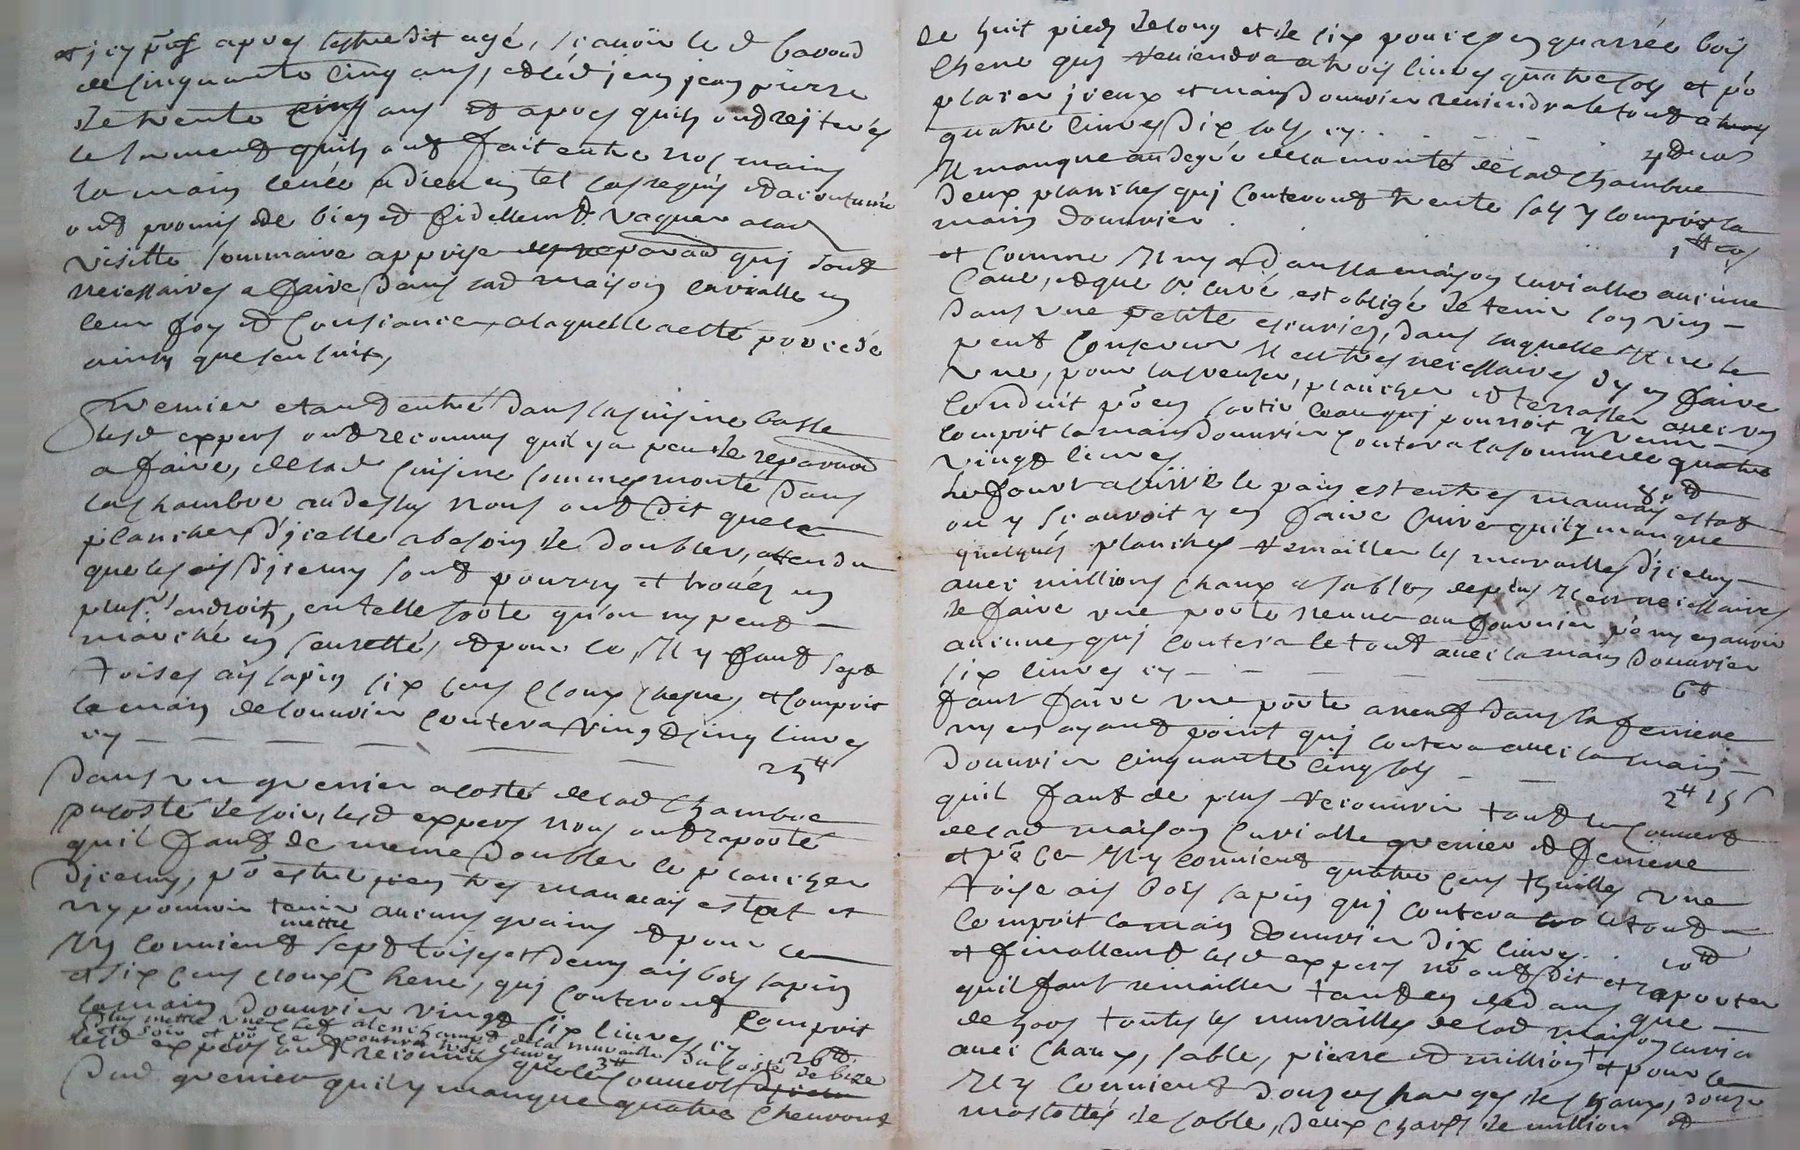 et j cy pñs apres lesquels dit agé, scavoir le d bavoud
de cinquante cinq ans, et led jean pierre
de trente cinq ans et apres quils ont reiterés
le serment quils ont fait entre nos mains
la main levée a dieu en tel cas requis et acoutumé
ont promis de bien et fidellement vaquer a lad
visitte sommaire apprise des reparaõns quj sont
necessaires a faire dans lad maison curialle en
leur foy et consiance, a laquelle a esté procédé
ainsy que sen suit,
Premier etand entré dans la cuisine basse
lesd expers ont reconnus quil y a peu de reparaõns
a faire, de lad cuisine sommes monté dans
la chambre au dessus nous ont dit que le
plancher d'jcelle a besoin de doubler, attendu
que les ais d'jceluy sont pourry et troués en
plusrs endroits, en telle sorte qu'on ny peut
marché en seuretté, et pour ce, Il y faut sept
toises ais sapin six cens cloux chesne, et compris
la main de l'ouvrier coutera vingt cinq livres
cy 25tt
Dans un grenier a costé de lad chambre
du costé de soir, lesd expers nous ont raporté
quil faut de meme doubler le plancher
d'jceluy, po estre jcelui tres mauvais estat et
ny pouvoir tenir aucuns grains et pour ce
mettre
Il y convient sept toises et demy ais bois sapin
et six cens cloux chene, quj couteront compris
la main d'ouvrier vingt six livres cy 26tt
Plus mettre une clef a lenchant de la muraille du costé de bize
et soir et po ce coutera trois livres 3tt
lesd expers ont reconnu que le couvert d'jcelui
dud grenier quil y manque quatre chevrons
de huit pieds de long et de six pouces en quarrée bois
chene quj reviendra a trois livres quatre sols et po
placer jceux et main d'ouvrier reviendra le tout a trois
quatre livres dix sols cy 4tt 10s
Il manque au degré de la monté de lad chambre
deux planches quj couteront trente sols y compris la
main d'ouvrier 1tt 10s
et comme Il ny a dans la maison curialle aucune
cave, et que sr curé est obligé de tenir son vin
dans une petite escurie, dans laquelle Il ne le
peut conserver Il est tres necessaires d'y en faire
une, pour la creuser, plancher et terrasser avec un
conduit po en sortir l'eau quj pourroit y venir
compris la main d'ouvrier coutera la somme de quatre
vingt livres 80tt
le fourt a cuire le pain est en tres mauvais estat
on y scauroit y en faire cuire quil y manque
quelques planches remailler les murailles d'jceluy
avec millions chaux et sables de plus Il est necessaires
de faire une porte neuve au fournier po ny en avoir
aucune, quj coutera le tout avec la main d'ouvrier
six livres cy 6tt
faut faire une porte a neuf dans la feniere
ny en ayant point quj coutera avec la main
d'ouvrier cinquante cinq sols 2tt 15s
quil faut de plus recouvrir tout le couvert
de lad maison curialle grenier et feniere
et po ce Il y convient quatre cens thuilles une
toise ais bois sapin quj coutera le tout
compris la main d'ouvrier dix livres 10tt
et finallement lesd expers no ont dit et raporter
quil faut remailler tant en dedans que
dehors toutes les murailles de lad maison curia
avec chaux, sable, pierre et million et pour ce
Il y convient douze charges de chaux, douze
mastottés de sable, deux chars de million et